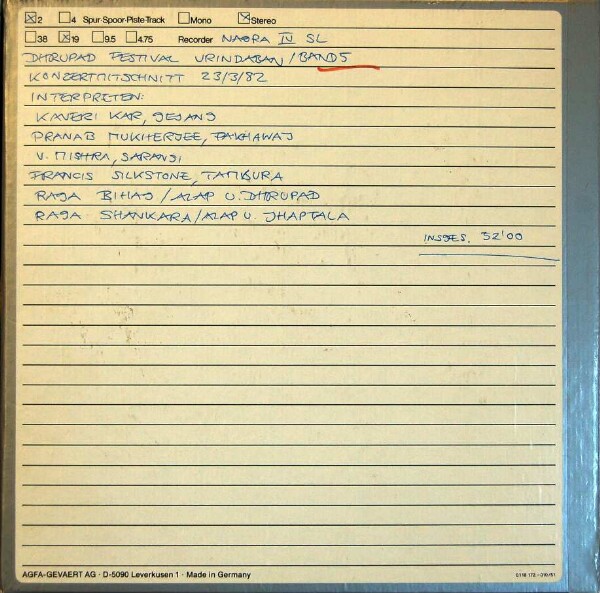 ☒2 ☐4 Spur-Spoor-Piste-Track ☐Mono ☒Stereo
☐38 ☒19 ☐9.5 ☐4.75 Recorder NAGRA IV SL
DHRUPAD FESTIVAL VRINDABAN / BAND 5
KONZERTMITSCHNITT 23/3/82
INTERPRETEN:
KAVERI KAR, GESANG
PRANAB MUKHERJEE, PAKHAWAJ
V. MISHRA, SARANGI
FRANCIS SILKSTONE, TAMBURA
RAGA BIHAG / ALAP U. DHRUPAD
RAGA SHANKARA / ALAP U. JHAPTALA
INSGES. 32'00
AGFA-GEVAERT AG · D-5090 Leverkusen 1 · Made in Germany